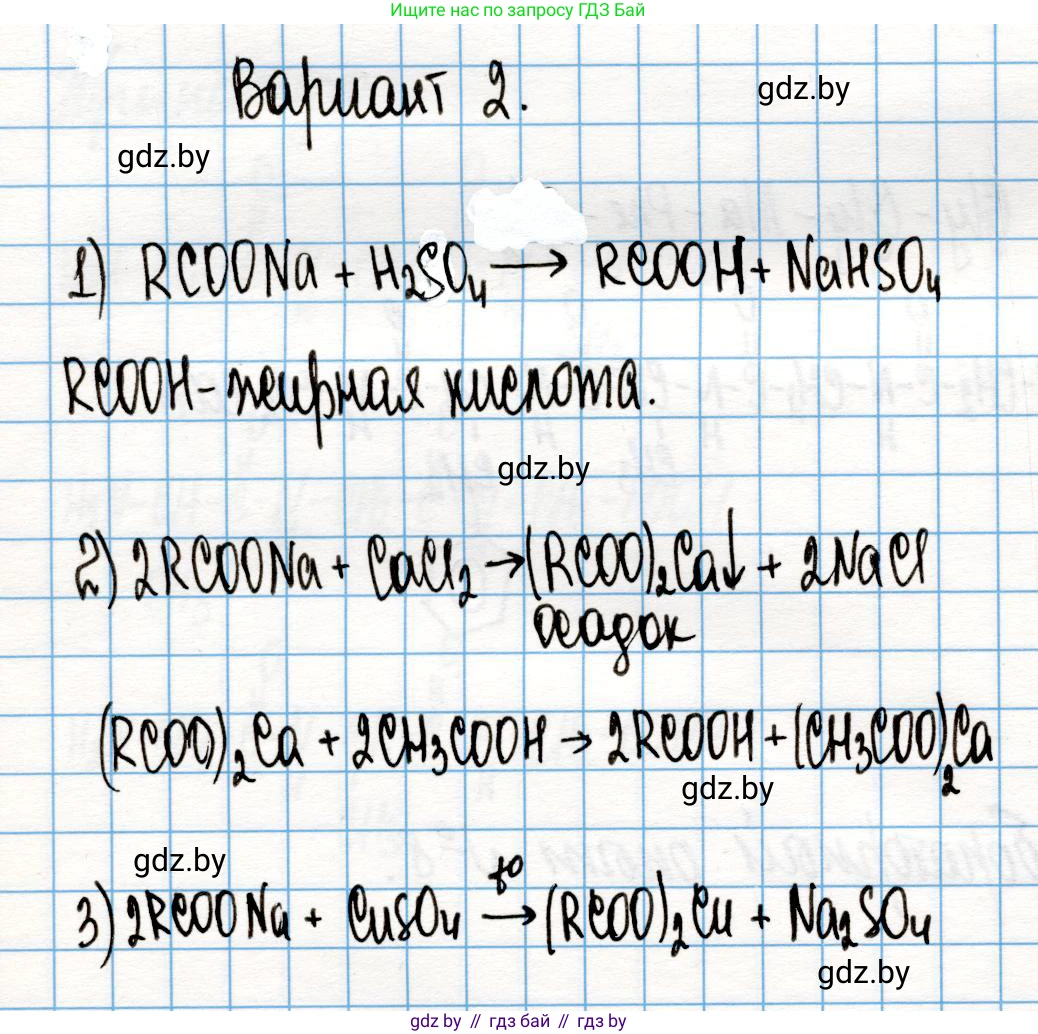 Ищите нас по запросу ГДЗ Бай
Вариант 2.
gdz.by
gdz.by
1) RCOONa + H₂SO₄ → RCOOH + NaHSO₄
RCOOH - жирная кислота.
gdz.by
2) 2RCOONa + CaCl₂ → (RCOO)₂Ca↓ + 2NaCl
осадок
(RCOO)₂Ca + 2CH₃COOH → 2RCOOH + (CH₃COO)₂Ca
gdz.by
gdz.by
3) 2RCOONa + CuSO₄ →(t°) (RCOO)₂Cu + Na₂SO₄
gdz.by
gdz.by // гдз бай // гдз by